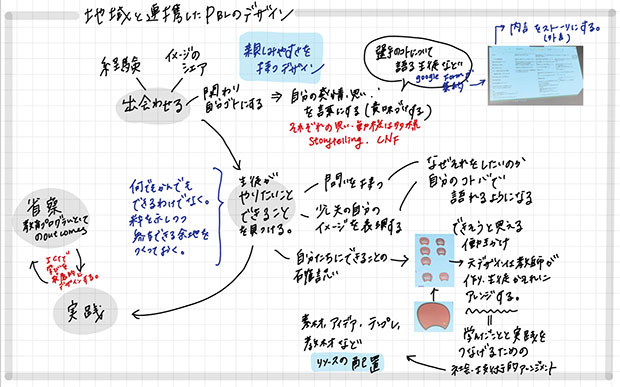 地域と連携したPBLのデザイン
経験
イメージの
シェア
出会わせる
関わり
自分ゴトにする
親しみやすさを
持つデザイン
⇒ 自分の発情、思い、
を言葉にする(意味づけする)
それぞれの思い・
Storytelling. CNF
語る生徒など
google Formで
集約
内言をストーリーにする。
(外言)
何でもかんでも
できるわけでなく。
枠を示しつつ
できる余地を
つくっておく。
生徒が
やりたいこと
できること
を見つける。
問いを持つ
なぜそれをしたいのか
自分のコトバで
語れるようになる
少し先の自分の
イメージを表現する
自分たちにできることの
確認
できそうと思える
働きかけ
元デザインは教師が
作り、生徒がそれに
アレンジする。
学んだことと実践を
つなげるための
社会・技術的アレンジメント
素材、アイデア、テンプレ、
教材など
リソースの配置
省察
教育プログラムとしての
outcomes
ICTで
学びを
デザインする。
実践